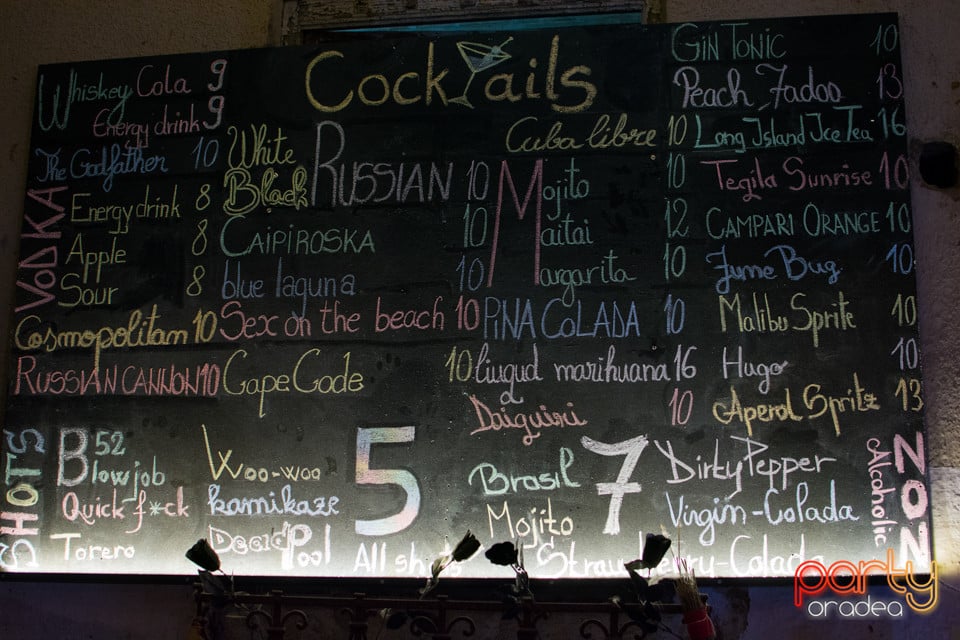 Cocktails
Whiskey Cola 9
Energy drink 9
The Godfather 10
VODKA
Energy drink 8
Apple 8
Sour 8
Cosmopolitam 10
RUSSIAN CANNON 10
White
Black
RUSSIAN 10
10
CAIPIROSKA
blue laguna 10
Sex on the beach 10
Cape Code 10
Cuba libre 10
Mojito 10
Maitai 12
Margarita 10
PiNA COLADA 10
liugud marihuana 16
Daiguiri 10
GIN TONIC 10
Peach Fadoo 13
Long Island Ice Tea 16
Tegila Sunrise 10
CAMPARI ORANGE 10
June Bug 10
Malibu Sprite 10
Hugo 10
Aperol Spritz 13
SHOTS
B52
Blowjob
Quick f*ck
Torero
Woo-woo
kamikaze
Deadpool
5
All shots
Brasil
Mojito
7
Dirty Pepper
Virgin-Colada
Strawberry-Colada
Alcoholic
NON
party
oradea